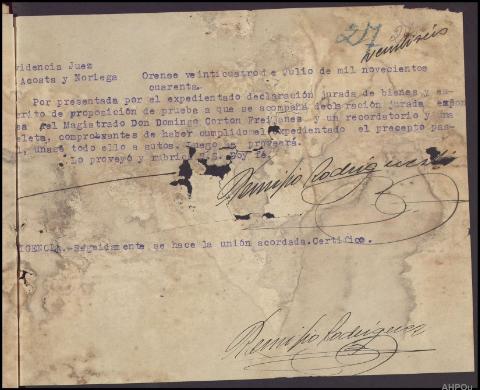 27
veintiseis
videncia Juez
Acosta y Noriega Orense veinticuatro de Julio de mil novecientos
cuarenta.
Por presentada por el expedientado declaración jurada de bienes y es-
crito de proposición de prueba a que se acompaña declaración jurada
del Magistrado Don Domingo Corton Freijanes y un recordatorio y una
leta, comprobantes de haber cumplido el expedientado el precepto pas-
, únase todo ello a autos. Luego se proveerá.
Lo proveyó y rubrica S.S. Doy fé.
Remigio Rodríguez
IGENCIA.-Seguidamente se hace la unión acordada. Certifico.
Remigio Rodríguez
AHPOu